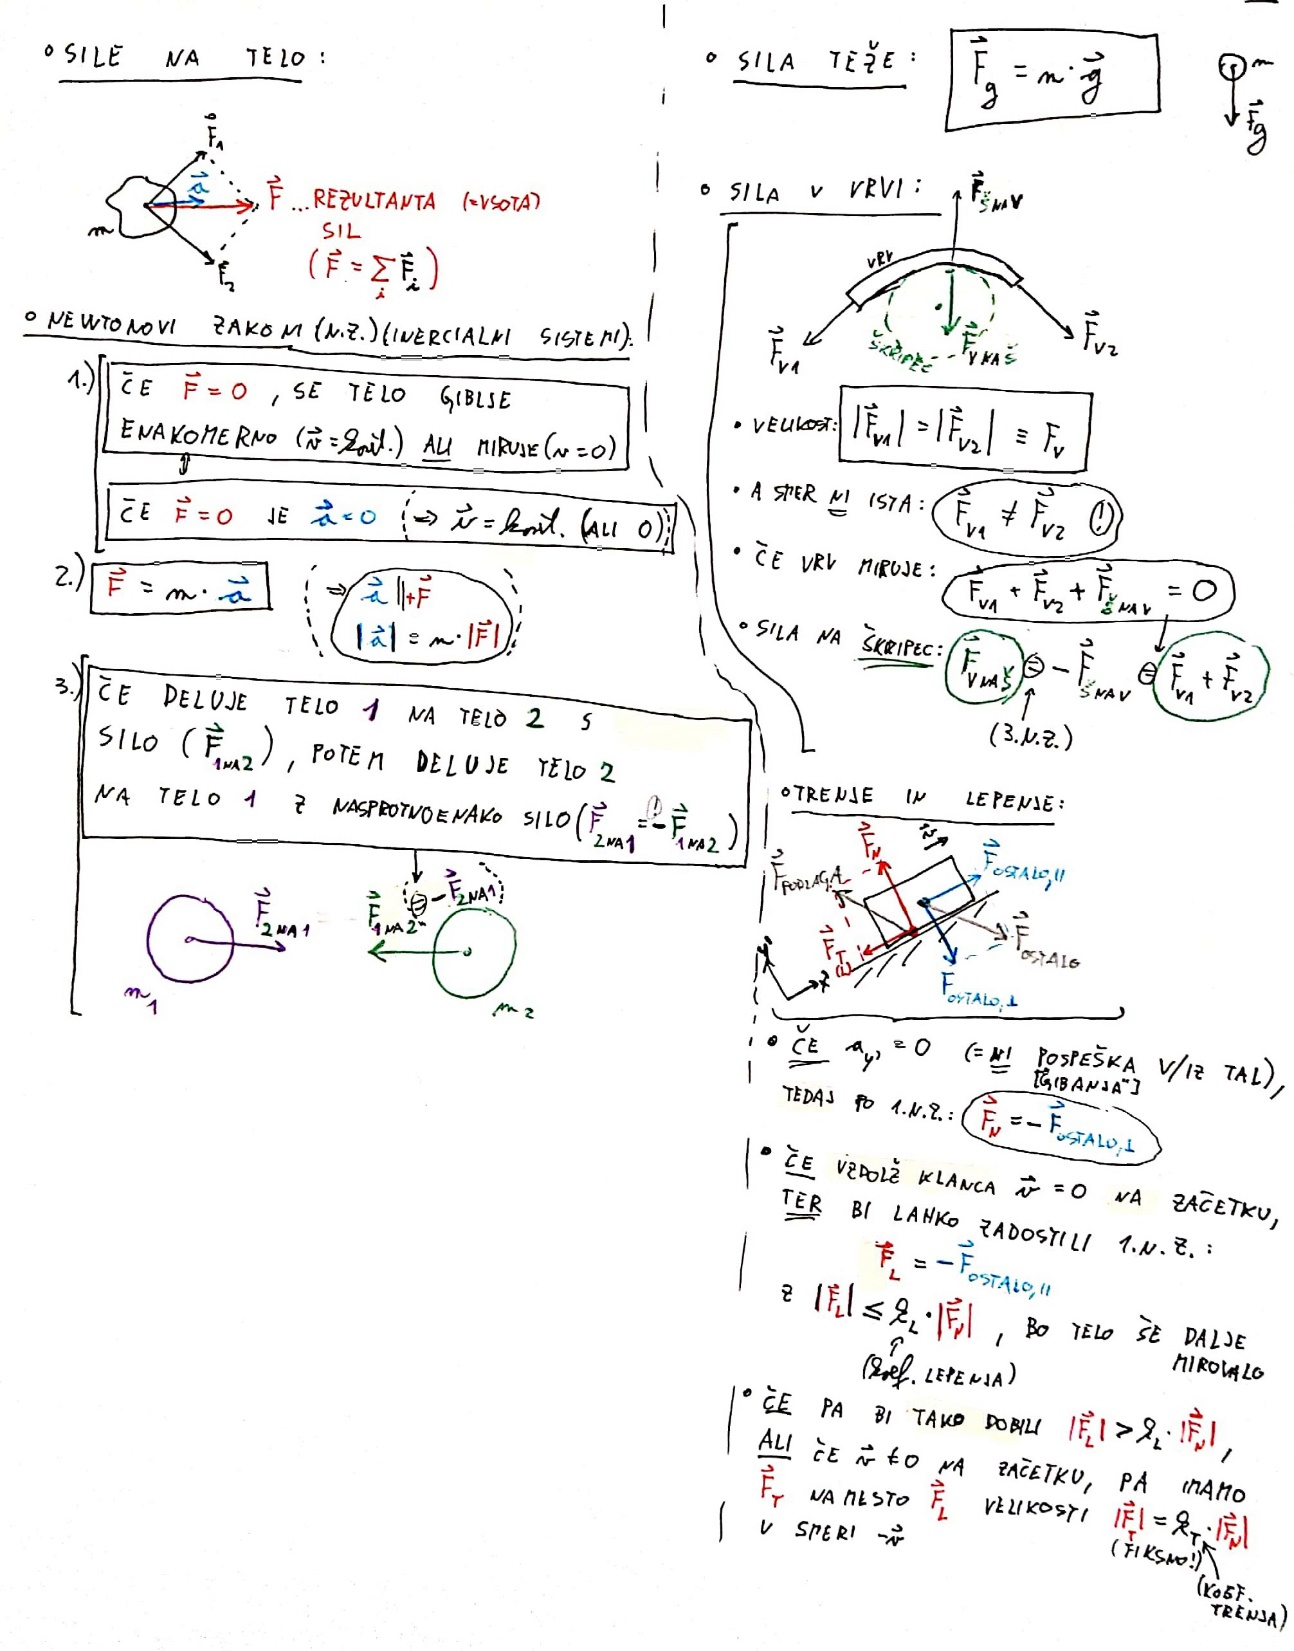 ° SILE NA TELO:
F⃗₁
a⃗
F⃗ ... REZULTANTA (=VSOTA)
SIL
(F⃗ = Σᵢ F⃗ᵢ)
m
F⃗₂
° NEWTONOVI ZAKONI (N.Z.) (INERCIALNI SISTEMI):
1.) ČE F⃗ = 0, SE TELO GIBLJE
ENAKOMERNO (v⃗ = konst.) ALI MIRUJE (v = 0)
ČE F⃗ = 0 JE a⃗ = 0 (⇒ v⃗ = konst. (ALI 0))
2.) F⃗ = m · a⃗ (⇒ a⃗ ||+F⃗
|a⃗| = m · |F⃗|)
3.) ČE DELUJE TELO 1 NA TELO 2 S
SILO (F⃗ 1NA2), POTEM DELUJE TELO 2
NA TELO 1 Z NASPROTNOENAKO SILO (F⃗ 2NA1 = - F⃗ 1NA2)
(!)
F⃗ 2NA1
F⃗ 1NA2 (= -F⃗ 2NA1)
m₁
m₂
° SILA TEŽE: F⃗g = m · g⃗
m
F⃗g
° SILA V VRVI:
F⃗ ŠNAV
VRV
F⃗v1
ŠKRIPEC
F⃗ VNAŠ
F⃗v2
• VELIKOST: |F⃗v1| = |F⃗v2| ≡ Fv
• A SMER NI ISTA: F⃗v1 ≠ F⃗v2 (!)
• ČE VRV MIRUJE: F⃗v1 + F⃗v2 + F⃗ ŠNAV = 0
• SILA NA ŠKRIPEC: F⃗ VNAŠ = - F⃗ ŠNAV = F⃗v1 + F⃗v2
(3.N.Z.)
° TRENJE IN LEPENJE:
F⃗N
v⃗
F⃗ OSTALO,||
F⃗ PODLAGA
F⃗T
(L)
F⃗ OSTALO
F⃗ OSTALO,⊥
y'
x'
• ČE a y' = 0 (= NI POSPEŠKA V/IZ TAL),
["GIBANJA"]
TEDAJ PO 1.N.Z.: F⃗N = - F⃗ OSTALO,⊥
• ČE VZDOLŽ KLANCA v⃗ = 0 NA ZAČETKU,
TER BI LAHKO ZADOSTILI 1.N.Z.:
F⃗L = - F⃗ OSTALO,||
Z |F⃗L| ≤ kL · |F⃗N|, BO TELO ŠE DALJE
MIROVALO
(koef. LEPENJA)
• ČE PA BI TAKO DOBILI |F⃗L| > kL · |F⃗N|,
ALI ČE v⃗ ≠ 0 NA ZAČETKU, PA IMAMO
F⃗T NAMESTO F⃗L VELIKOSTI |F⃗T| = kT · |F⃗N|
V SMERI -v⃗
(FIKSNO!)
(KOEF.
TRENJA)